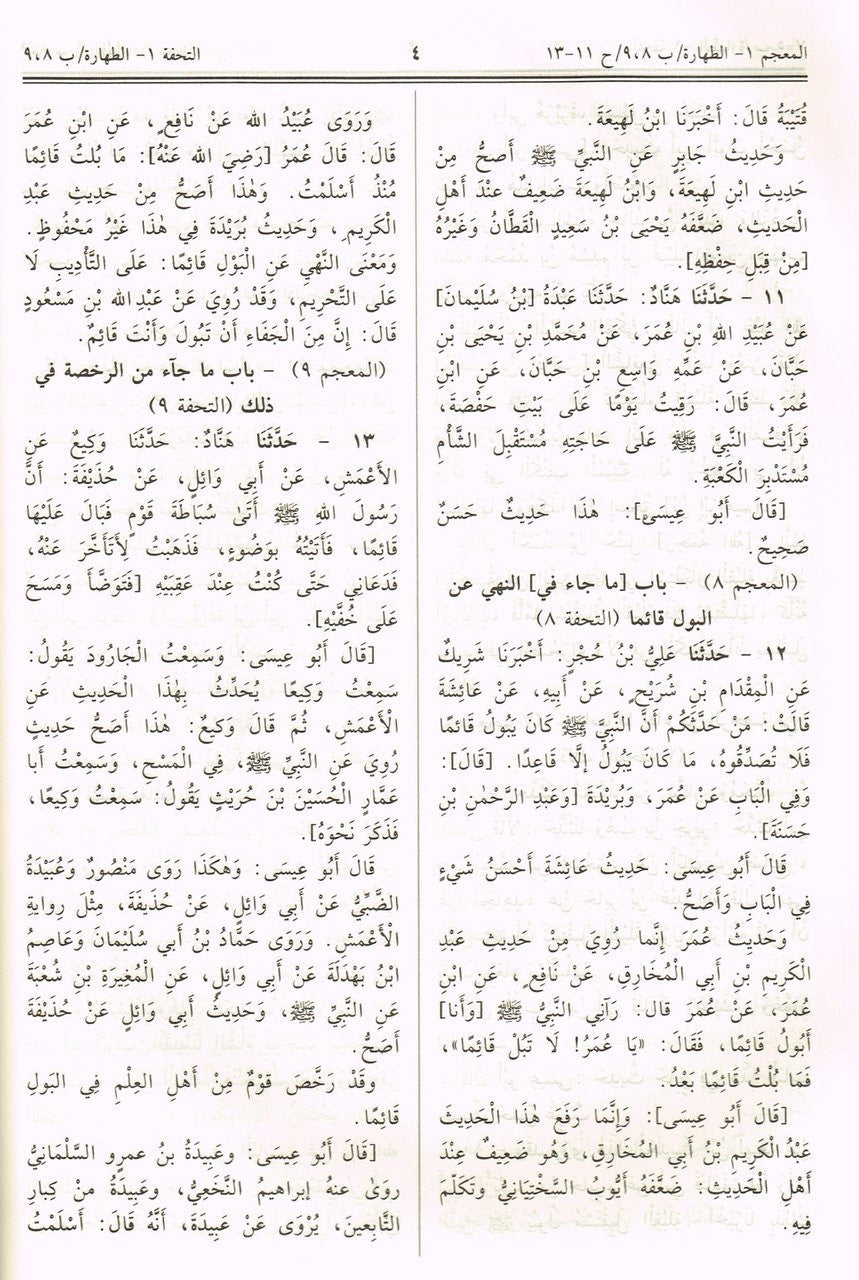 المعجم ١- الطهارة/ ب ٩،٨/ ح ١١-١٣
٤
التحفة ١- الطهارة/ ب ٩،٨
قُتَيْبَةُ قَالَ: أَخْبَرَنَا ابْنُ لَهِيعَةَ.
وَحَدِيثُ جَابِرٍ عَنِ النَّبِيِّ ﷺ أَصَحُّ مِنْ
حَدِيثِ ابْنِ لَهِيعَةَ، وَابْنُ لَهِيعَةَ ضَعِيفٌ عندَ أَهْلِ
الْحَديثِ، ضَعَّفَهُ يَحْيَى بْنُ سَعِيدٍ الْقَطَّانُ وَغَيْرُهُ
[مِنْ قِبَلِ حِفْظِهِ].
١١ - حَدَّثَنَا هَنَّادٌ: حَدَّثَنَا عَبْدَةُ [بْنُ سُلَيْمَانَ]
عَنْ عُبَيْدِ اللهِ بْنِ عُمَرَ، عَنْ مُحَمَّدِ بْنِ يَحْيَى بْنِ
حَبَّانَ، عَنْ عَمِّهِ وَاسِعِ بْنِ حَبَّانَ، عَنِ ابْنِ
عُمَرَ، قَالَ: رَقِيتُ يَوْمًا عَلَى بَيْتِ حَفْصَةَ،
فَرَأَيْتُ النَّبِيَّ ﷺ عَلَى حَاجَتِهِ مُسْتَقْبِلَ الشَّأْمِ
مُسْتَدْبِرَ الْكَعْبَةِ.
[قَالَ أَبُو عِيسَى]: هٰذَا حَدِيثٌ حَسَنٌ
صَحِيحٌ.
(المعجم ٨) - باب [ما جاء في] النهي عن
البول قائما (التحفة ٨)
١٢ - حَدَّثَنَا عَلِيُّ بْنُ حُجْرٍ: أَخْبَرَنَا شَرِيكٌ
عَنِ الْمِقْدَامِ بْنِ شُرَيْحٍ، عَنْ أَبِيهِ، عَنْ عَائِشَةَ
قَالَتْ: مَنْ حَدَّثَكُمْ أَنَّ النَّبِيَّ ﷺ كَانَ يَبُولُ قَائمًا
فَلَا تُصَدِّقُوهُ، مَا كَانَ يَبُولُ إِلَّا قَاعِدًا. [قَالَ]:
وَفِي الْبَابِ عَنْ عُمَرَ، وَبُرَيْدَةَ [وَعَبْدِ الرَّحْمٰنِ بْنِ
حَسَنَةَ].
قَالَ أَبُو عِيسَى: حَدِيثُ عَائِشَةَ أَحْسَنُ شَيْءٍ
فِي الْبَابِ وَأَصَحُّ.
وَحَدِيثُ عُمَرَ إِنَّمَا رُوِيَ مِنْ حَدِيثِ عَبْدِ
الْكَرِيمِ بْنِ أَبِي الْمُخَارِقِ، عَنْ نَافِعٍ، عَنِ ابْنِ
عُمَرَ، عَنْ عُمَرَ قال: رَآنِي النَّبِيُّ ﷺ [وَأَنا]
أَبُولُ قَائِمًا، فَقَالَ: «يَا عُمَرُ! لَا تَبُلْ قَائِمًا»،
فَمَا بُلْتُ قَائِمًا بَعْدُ.
[قَالَ أَبُو عِيسَى]: وَإِنَّمَا رَفَعَ هٰذَا الْحَدِيثَ
عَبْدُ الْكَرِيمِ بْنُ أَبِي المُخَارِقِ، وَهُو ضَعِيفٌ عِنْدَ
أَهْلِ الْحَدِيثِ: ضَعَّفَهُ أَيُّوبُ السَّخْتِيَانِيُّ وَتَكَلَّمَ
فِيهِ.
وَرَوَى عُبَيْدُ الله عَنْ نَافِعٍ، عَنِ ابْنِ عُمَرَ
قَالَ: قَالَ عُمَرُ [رَضِيَ الله عَنْهُ]: مَا بُلتُ قَائِمًا
مُنْذُ أَسْلَمْتُ. وَهٰذَا أَصَحُّ مِنْ حَدِيثِ عَبْدِ
الْكَرِيمِ، وَحَدِيثُ بُرَيْدَةَ فِي هٰذَا غَيْرُ مَحْفُوظٍ.
وَمَعْنَى النَّهْيِ عَنِ الْبَوْلِ قَائِمًا: عَلَى التَّأْدِيبِ لَا
عَلَى التَّحْرِيمِ، وَقَدْ رُوِيَ عَنْ عَبدِ الله بْنِ مَسْعُودٍ
قَالَ: إِنَّ مِنَ الْجَفَاءِ أَنْ تَبُولَ وَأَنْتَ قَائِمٌ.
(المعجم ٩) - باب ما جآء من الرخصة في
ذلك (التحفة ٩)
١٣ - حَدَّثَنَا هَنَّادٌ: حَدَّثَنَا وَكِيعٌ عَنِ
الأَعْمَشِ، عَنْ أَبِي وَائِلٍ، عَنْ حُذَيْفَةَ: أَنَّ
رَسُولَ اللهِ ﷺ أَتَىٰ سُبَاطَةَ قَوْمٍ فَبَالَ عَلَيْهَا
قَائِمًا، فَأَتَيْتُهُ بِوَضُوءٍ، فَذَهَبْتُ لِأَتَأَخَّرَ عَنْهُ،
فَدَعَانِي حَتَّى كُنْتُ عِنْدَ عَقِبَيْهِ [فَتَوَضَّأَ وَمَسَحَ
عَلَى خُفَّيْهِ].
[قَالَ أَبُو عِيسَى: وَسَمِعْتُ الْجَارُودَ يَقُولُ:
سَمِعْتُ وَكِيعًا يُحَدِّثُ بِهٰذَا الْحَدِيثِ عَنِ
الْأَعْمَشِ، ثُمَّ قَالَ وَكِيعٌ: هٰذَا أَصَحُّ حَدِيثٍ
رُوِيَ عَنِ النَّبِيِّ ﷺ، فِي الْمَسْحِ، وَسَمِعْتُ أَبا
عَمَّارٍ الْحُسَيْنَ بْنَ حُرَيْثٍ يَقُولُ: سَمِعْتُ وَكِيعًا،
فَذَكَرَ نَحْوَهُ].
قَالَ أَبُو عِيسَى: وَهٰكَذَا رَوَى مَنْصُورٌ وَعُبَيْدَةُ
الضَّبِّيُّ عَنْ أَبِي وَائِلٍ، عَنْ حُذَيفَةَ، مِثْلَ رِوايةِ
الْأَعْمَشِ. وَرَوَى حَمَّادُ بْنُ أَبي سُلَيْمَانَ وَعَاصِمُ
ابْنُ بَهْدَلَةَ عَنْ أَبي وَائِلٍ، عَنِ الْمُغِيرَةِ بْنِ شُعْبَةَ
عَنِ النَّبِيِّ ﷺ، وَحَدِيثُ أَبِي وَائِلٍ عَنْ حُذَيْفَةَ
أَصَحُّ.
وَقَدْ رَخَّصَ قَوْمٌ مِنْ أَهْلِ العِلْمِ فِي البَولِ
قَائِمًا.
[قَالَ أَبُو عِيسَى: وعَبِيدَةُ بنُ عمرٍو السَّلْمَانيُّ
روىٰ عنهُ إبراهيمُ النَّخَعِيُّ، وعَبِيدَةُ منْ كِبارِ
التَّابِعينَ، يُرْوَى عَنْ عَبِيدَةَ، أَنَّهُ قَالَ: أَسْلَمْتُ